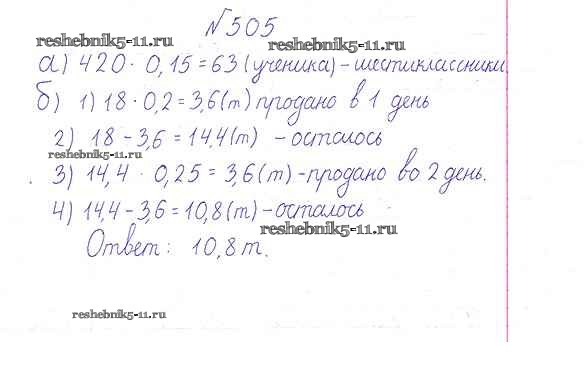 №505
reshebnik5-11.ru
reshebnik5-11.ru
а) 420 · 0,15 = 63 (ученика) – шестиклассники
б) 1) 18 · 0,2 = 3,6 (т) продано в 1 день
2) 18 – 3,6 = 14,4 (т) – осталось
reshebnik5-11.ru
3) 14,4 · 0,25 = 3,6 (т) – продано во 2 день.
4) 14,4 – 3,6 = 10,8 (т) – осталось
reshebnik5-11.ru
Ответ: 10,8 т.
reshebnik5-11.ru